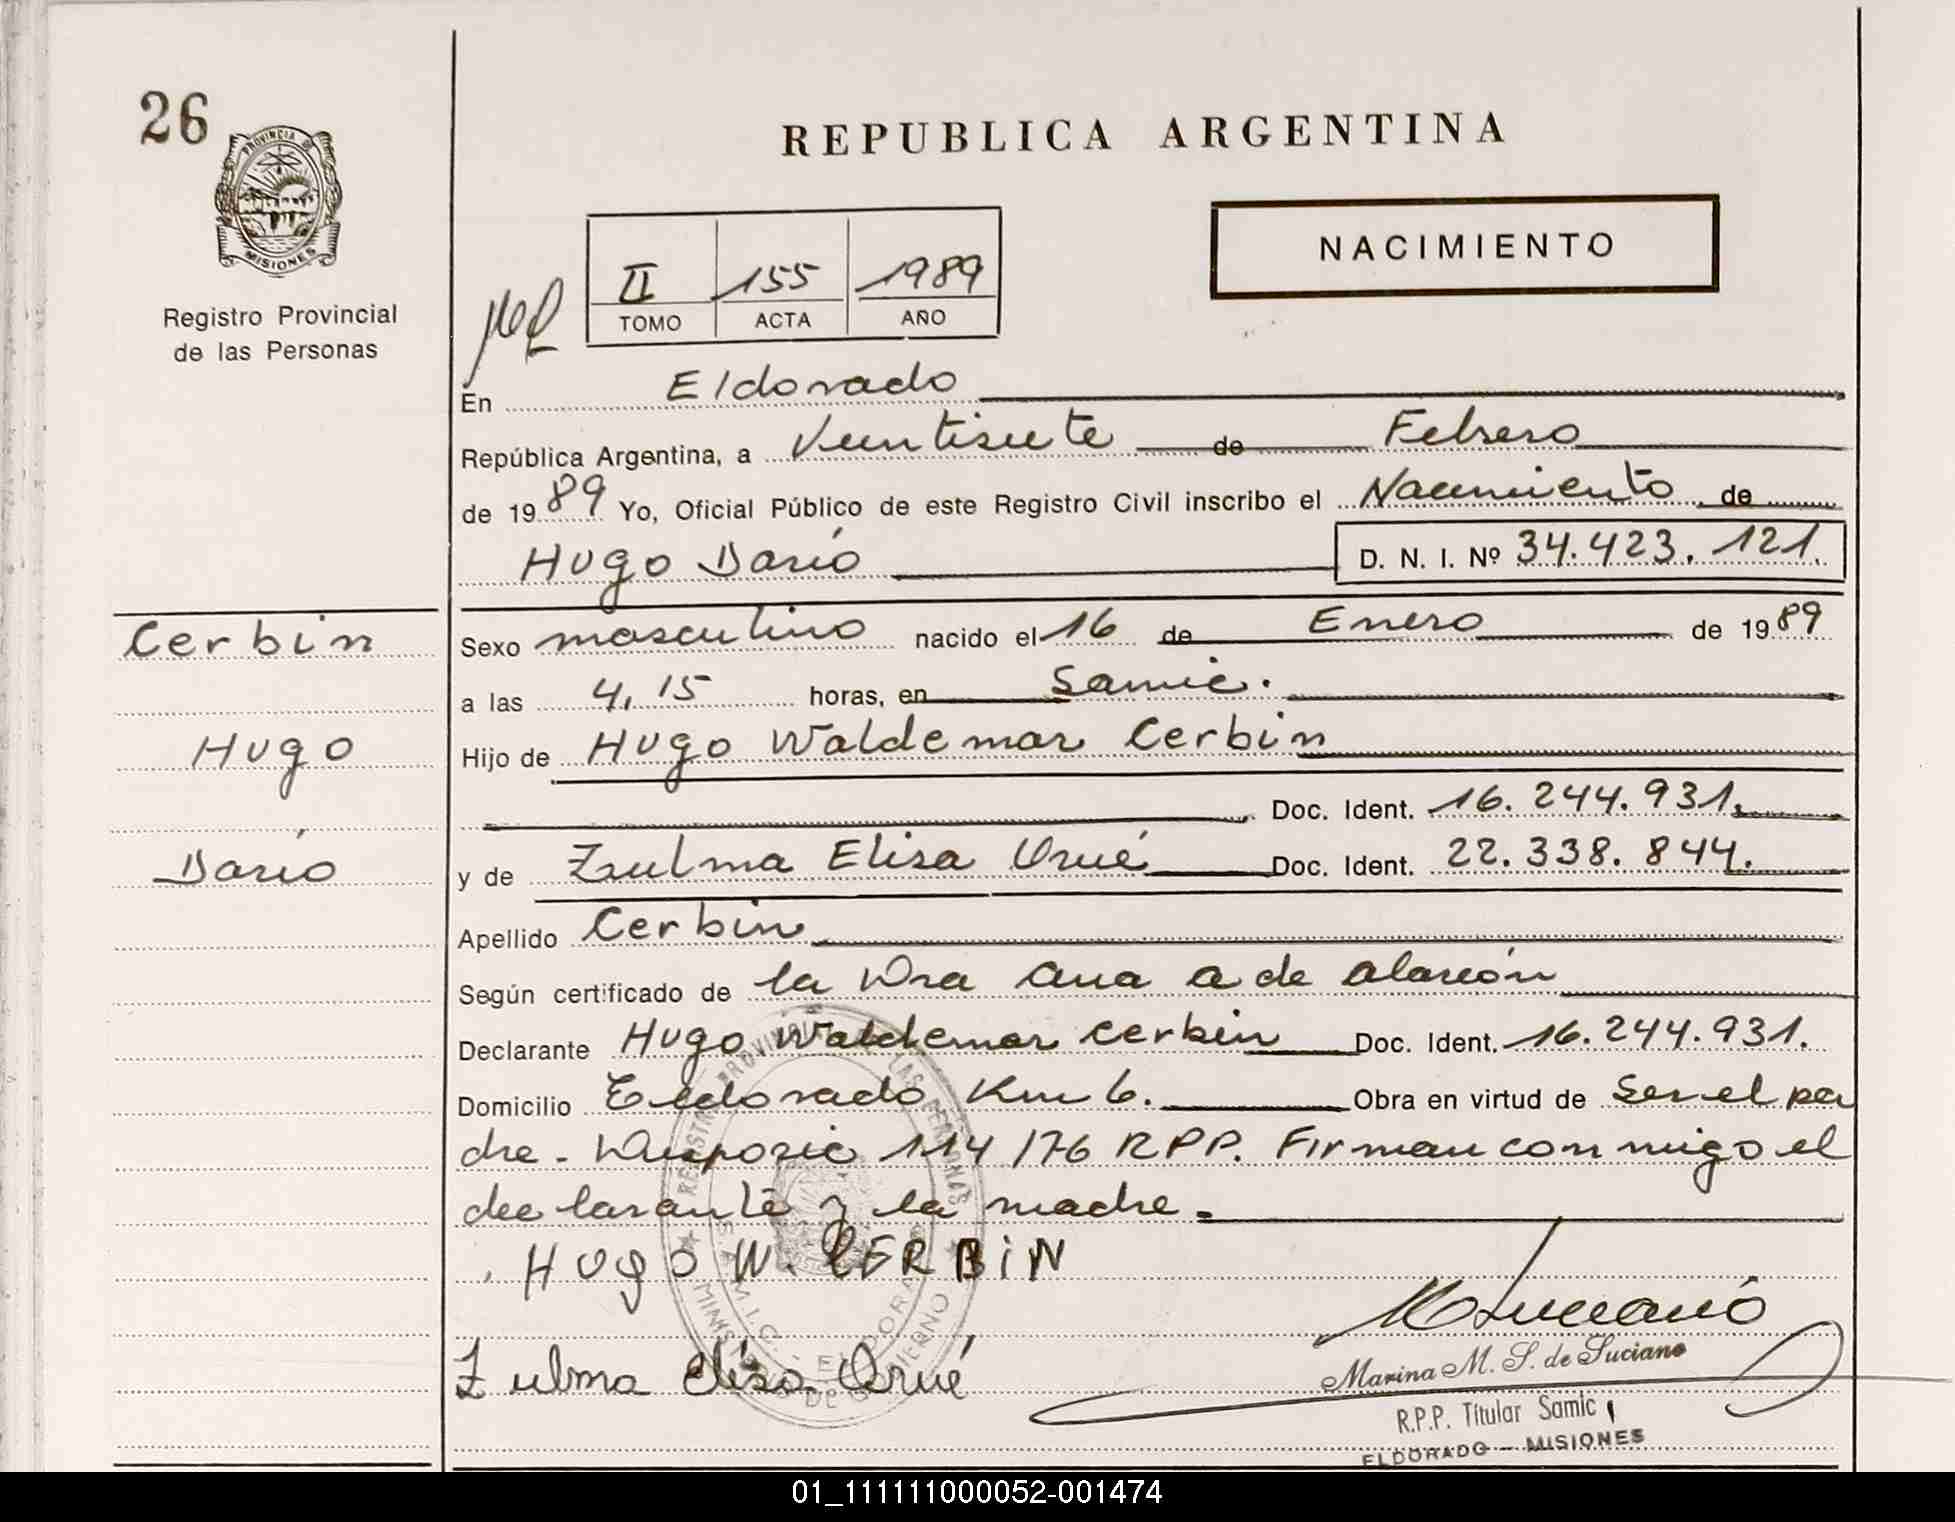 26
PROVINCIA DE
MISIONES
Registro Provincial
de las Personas
REPUBLICA ARGENTINA
NACIMIENTO
II 155 1989
TOMO ACTA AÑO
En Eldorado
República Argentina, a Veintisiete de Febrero
de 1989 Yo, Oficial Público de este Registro Civil inscribo el Nacimiento de
Hugo Darío D. N. I. Nº 34.423.121.
Cerbin
Hugo
Darío
Sexo masculino nacido el 16 de Enero de 1989
a las 4,15 horas, en Samic.
Hijo de Hugo Waldemar Cerbin
Doc. Ident. 16.244.931.
y de Zulma Elisa Orué Doc. Ident. 22.338.844.
Apellido Cerbin
Según certificado de la Dra Ana A de Alarcón
Declarante Hugo Waldemar Cerbin Doc. Ident. 16.244.931.
Domicilio Eldorado Km 6. Obra en virtud de Ser el pa
dre - Disposic 114/76 RPP. Firman conmigo el
declarante y la madre.
HUgO W. CERBiN
Zulma Elisa Orué
REGISTRO PROVINCIAL DE LAS PERSONAS
S.A.M.I.C. - ELDORADO
MINISTERIO DE GOBIERNO
Marina M. S. de Luciano
R.P.P. Titular Samic
ELDORADO - MISIONES
01_111111000052-001474